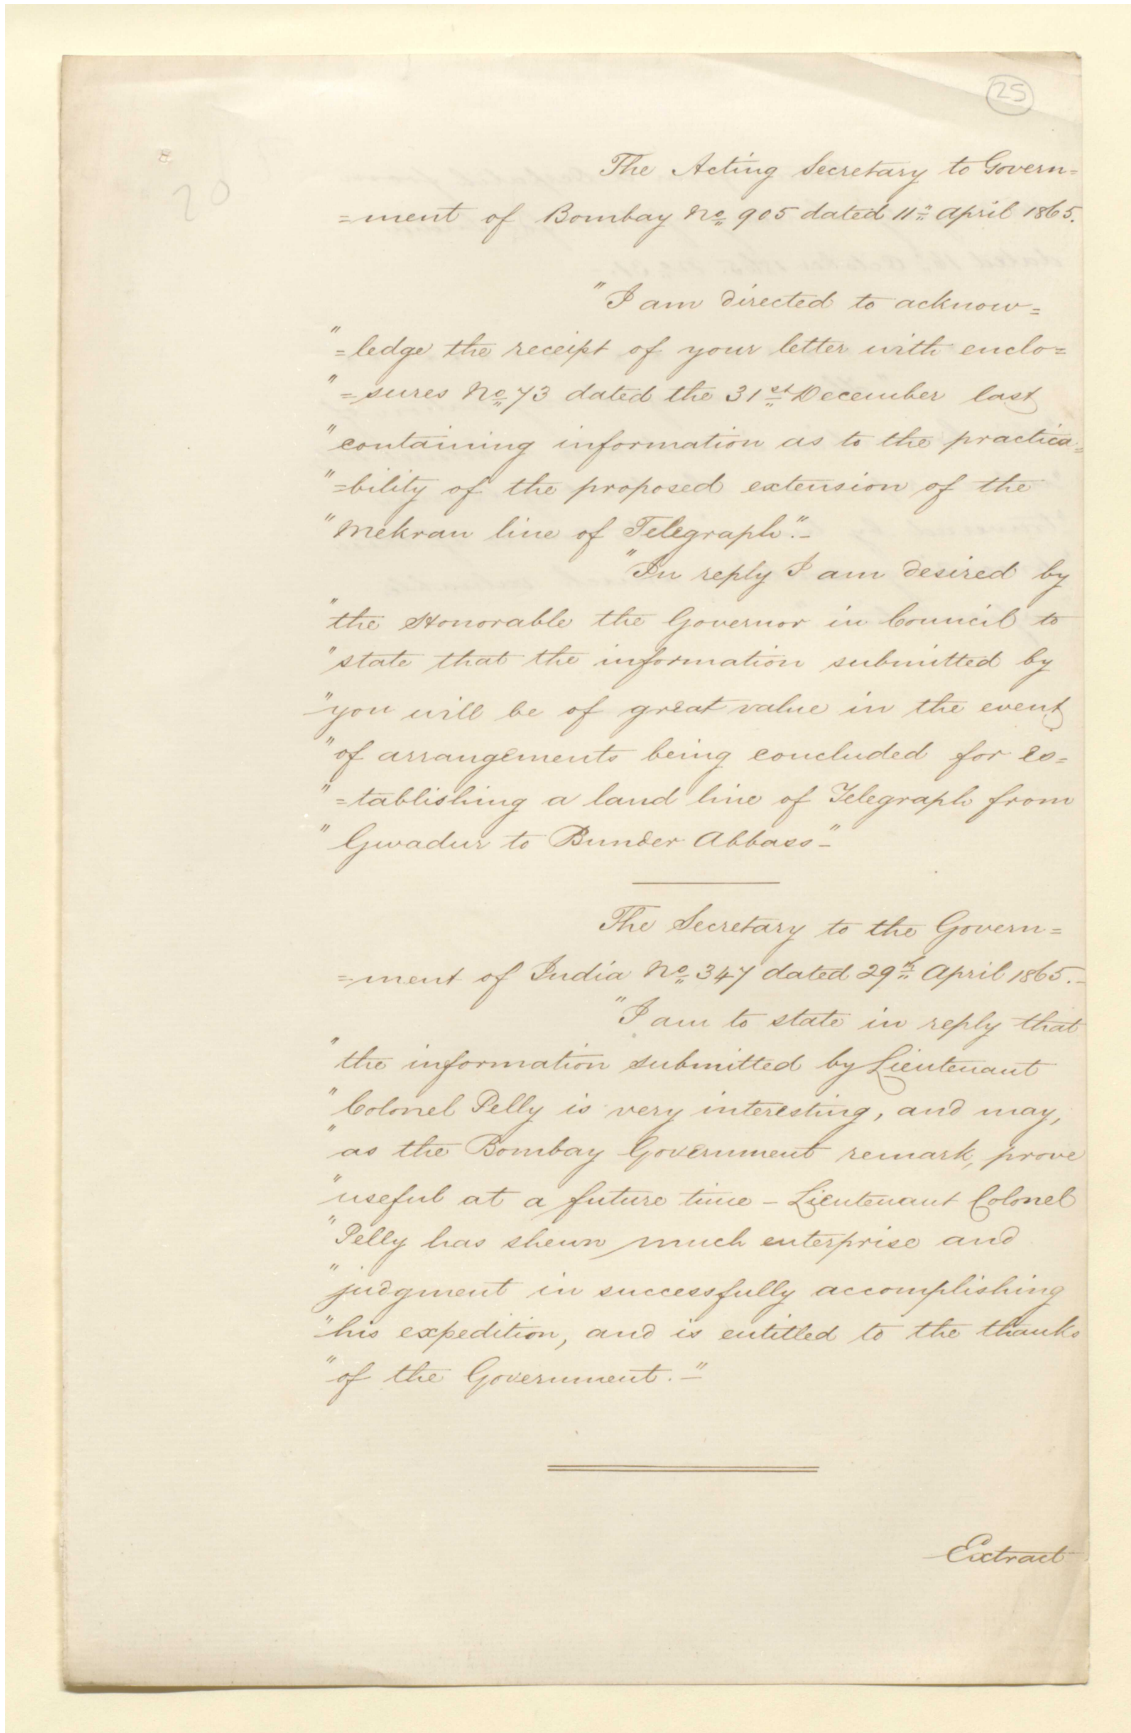 25
20
The Acting Secretary to Govern=
=ment of Bombay No 905 dated 11th April 1865.
"I am directed to acknow=
"=ledge the receipt of your letter with enclo=
"=sures No 73 dated the 31st December last
"containing information as to the practica=
"=bility of the proposed extension of the
"Mekran line of Telegraph."-
"In reply I am desired by
"the Honorable the Governor in Council to
"state that the information submitted by
"you will be of great value in the event
"of arrangements being concluded for es=
"=tablishing a land line of Telegraph from
"Gwadur to Bunder Abbass"-
The Secretary to the Govern=
=ment of India No 347 dated 29th April 1865.-
"I am to state in reply that
"the information submitted by Lieutenant
"Colonel Pelly is very interesting, and may,
"as the Bombay Government remark, prove
"useful at a future time - Lieutenant Colonel
"Pelly has shewn much enterprise and
"judgment in successfully accomplishing
"his expedition, and is entitled to the thanks
"of the Government.-"
Extract